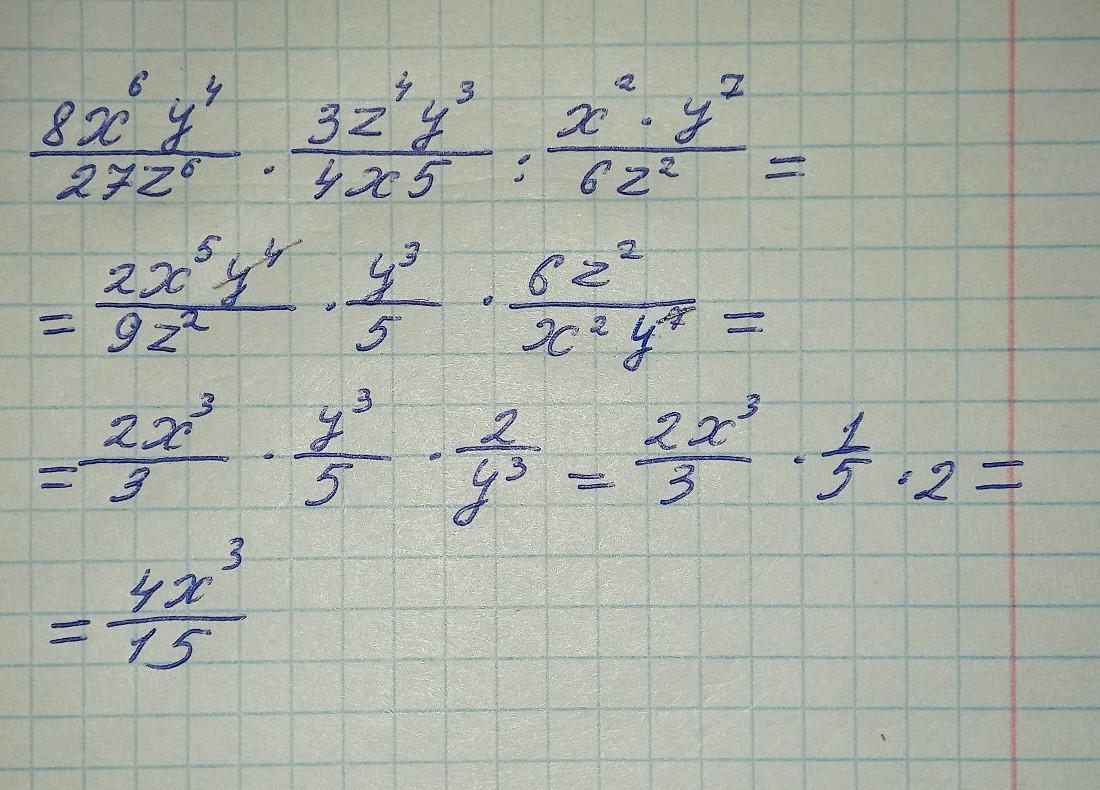 \frac{8x^6 y^4}{27z^6} \cdot \frac{3z^4 y^3}{4x5} : \frac{x^2 \cdot y^7}{6z^2} =
= \frac{2x^5 y^4}{9z^2} \cdot \frac{y^3}{5} \cdot \frac{6z^2}{x^2 y^7} =
= \frac{2x^3}{3} \cdot \frac{y^3}{5} \cdot \frac{2}{y^3} = \frac{2x^3}{3} \cdot \frac{1}{5} \cdot 2 =
= \frac{4x^3}{15}